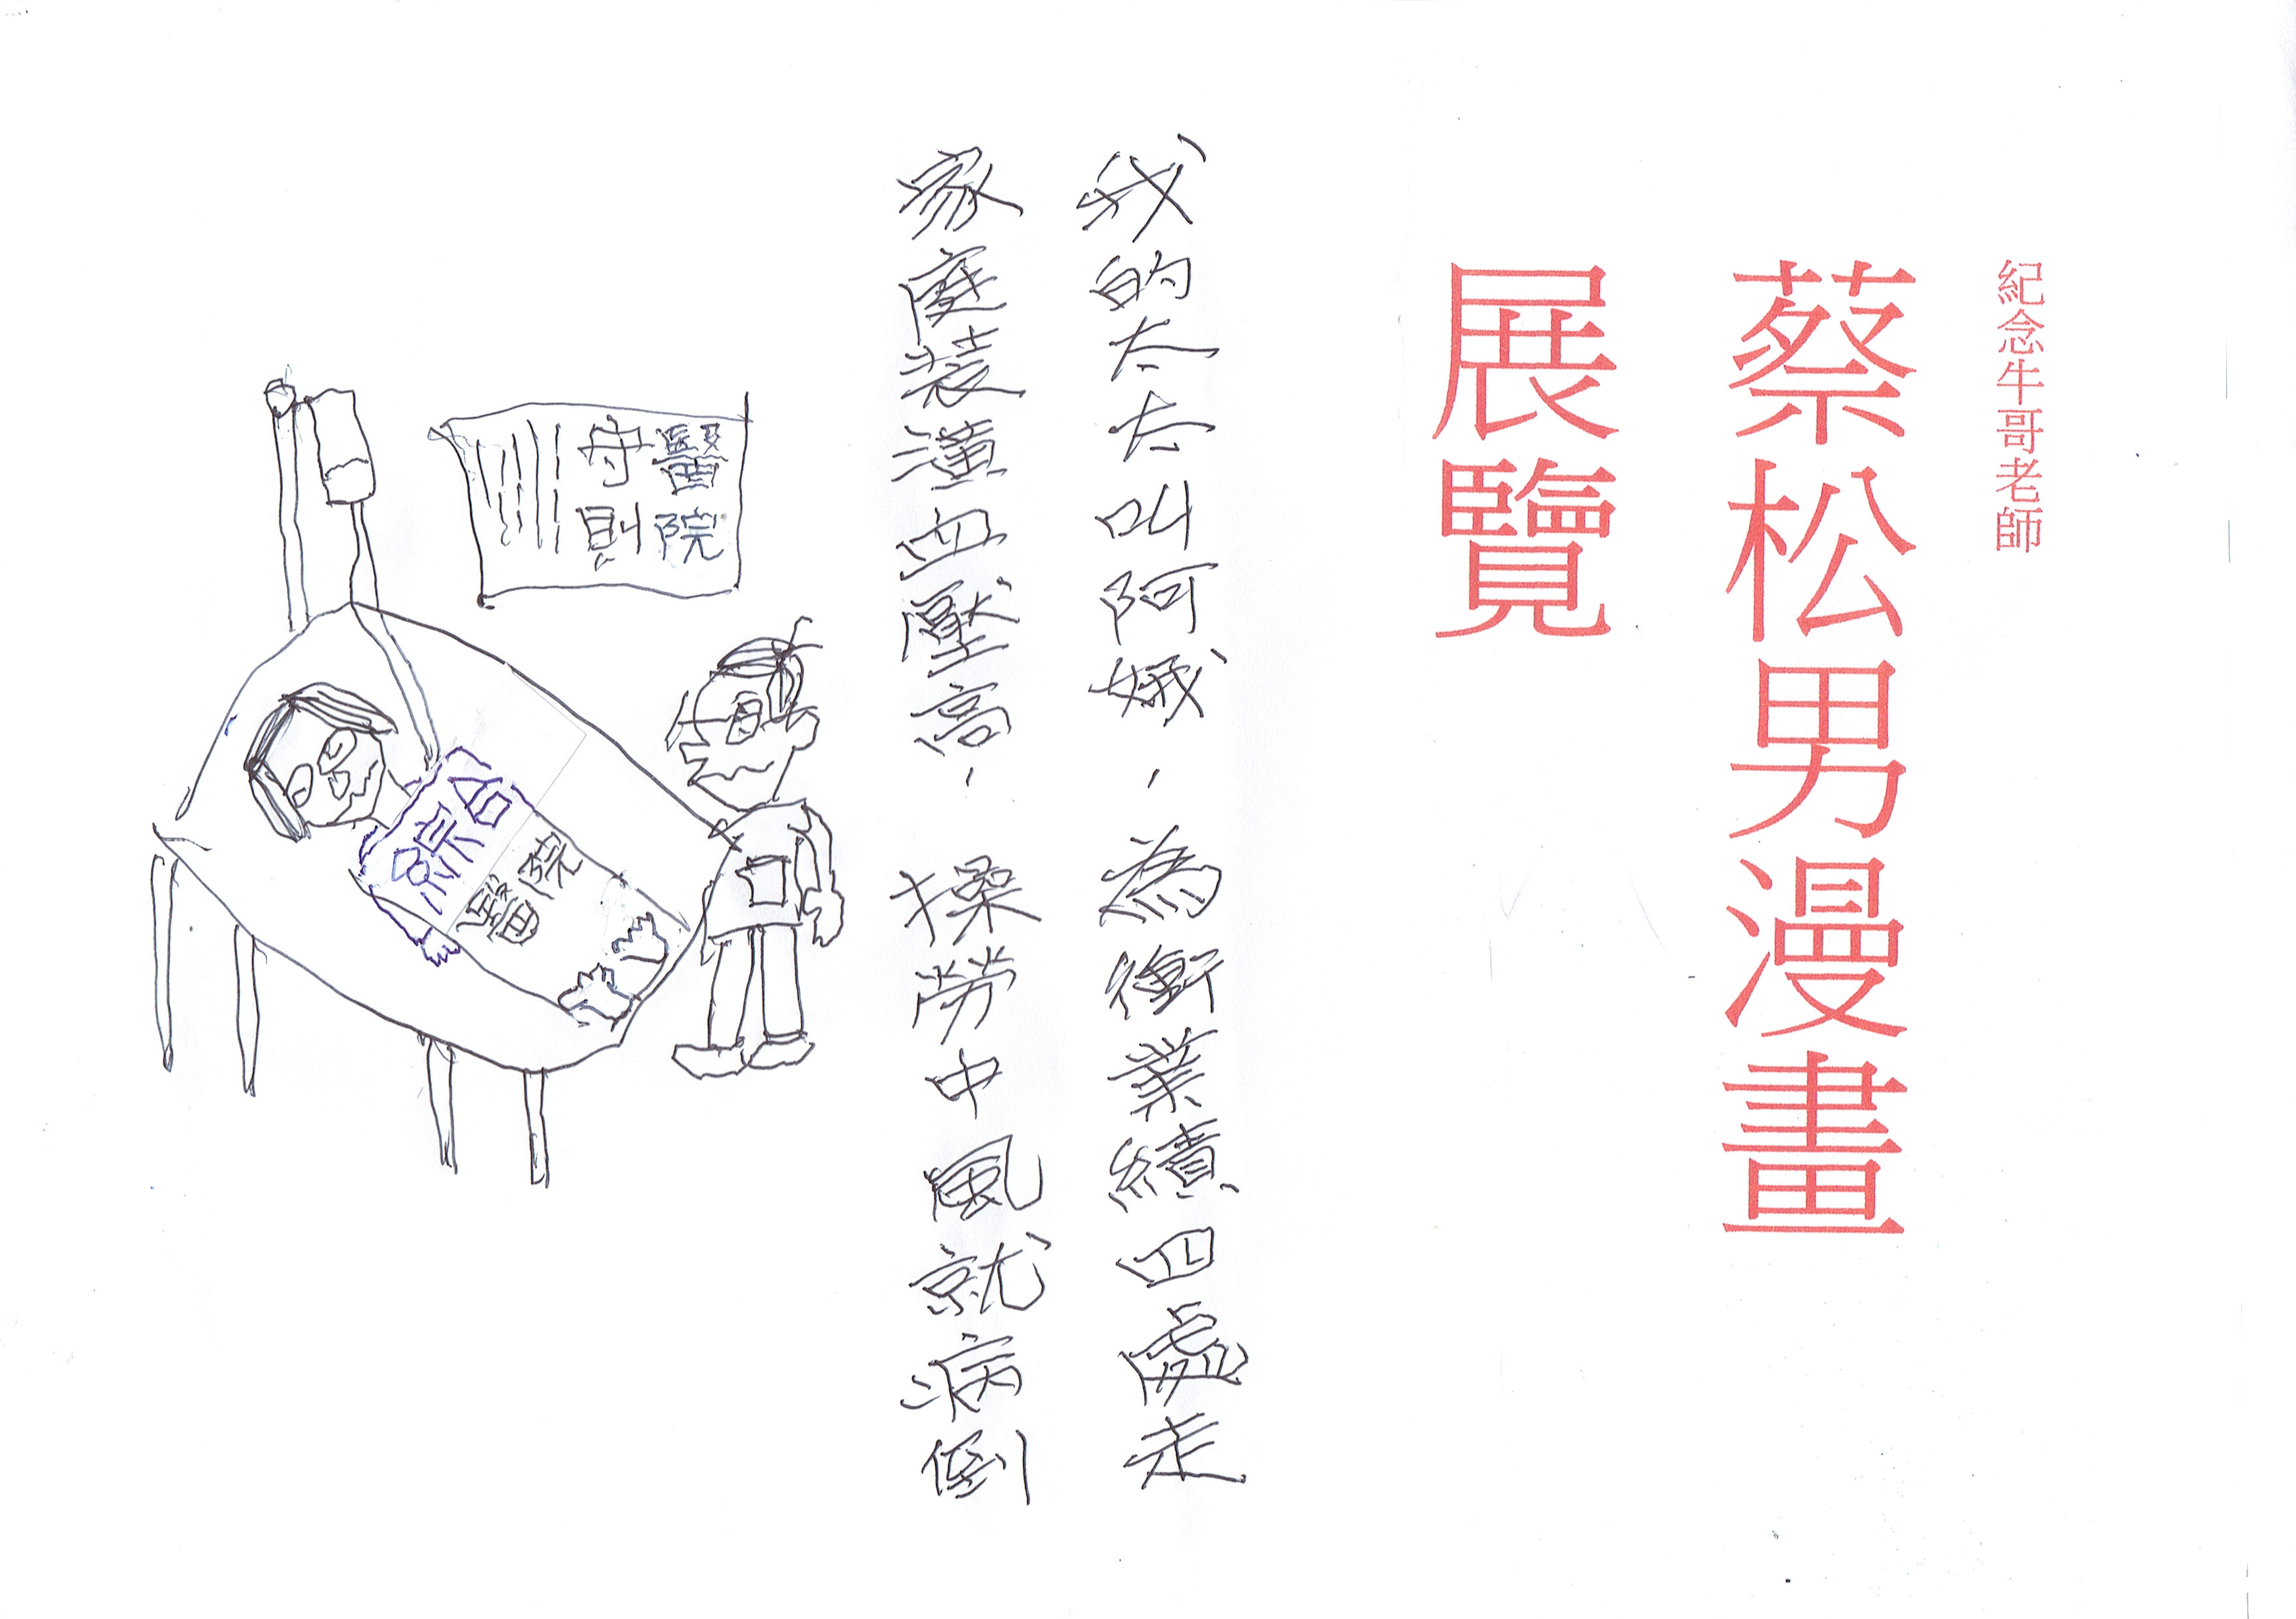 紀念牛哥老師
蔡松男漫畫
展覽
我的太太叫阿娥，為衝業績四處走
家庭裝潢血壓高，操勞中風就病倒
醫院
守則
綜合
醫療